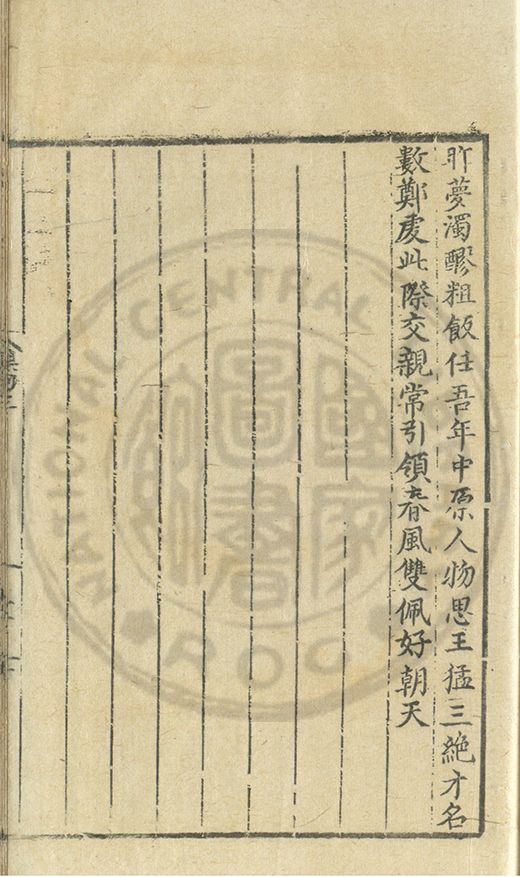 昨夢濁醪粗飯任吾年中原人物思王猛三絶才名
數鄭虔此際交親常引領春風雙佩好朝天
NATIONAL CENTRAL
國家圖書館
ROC